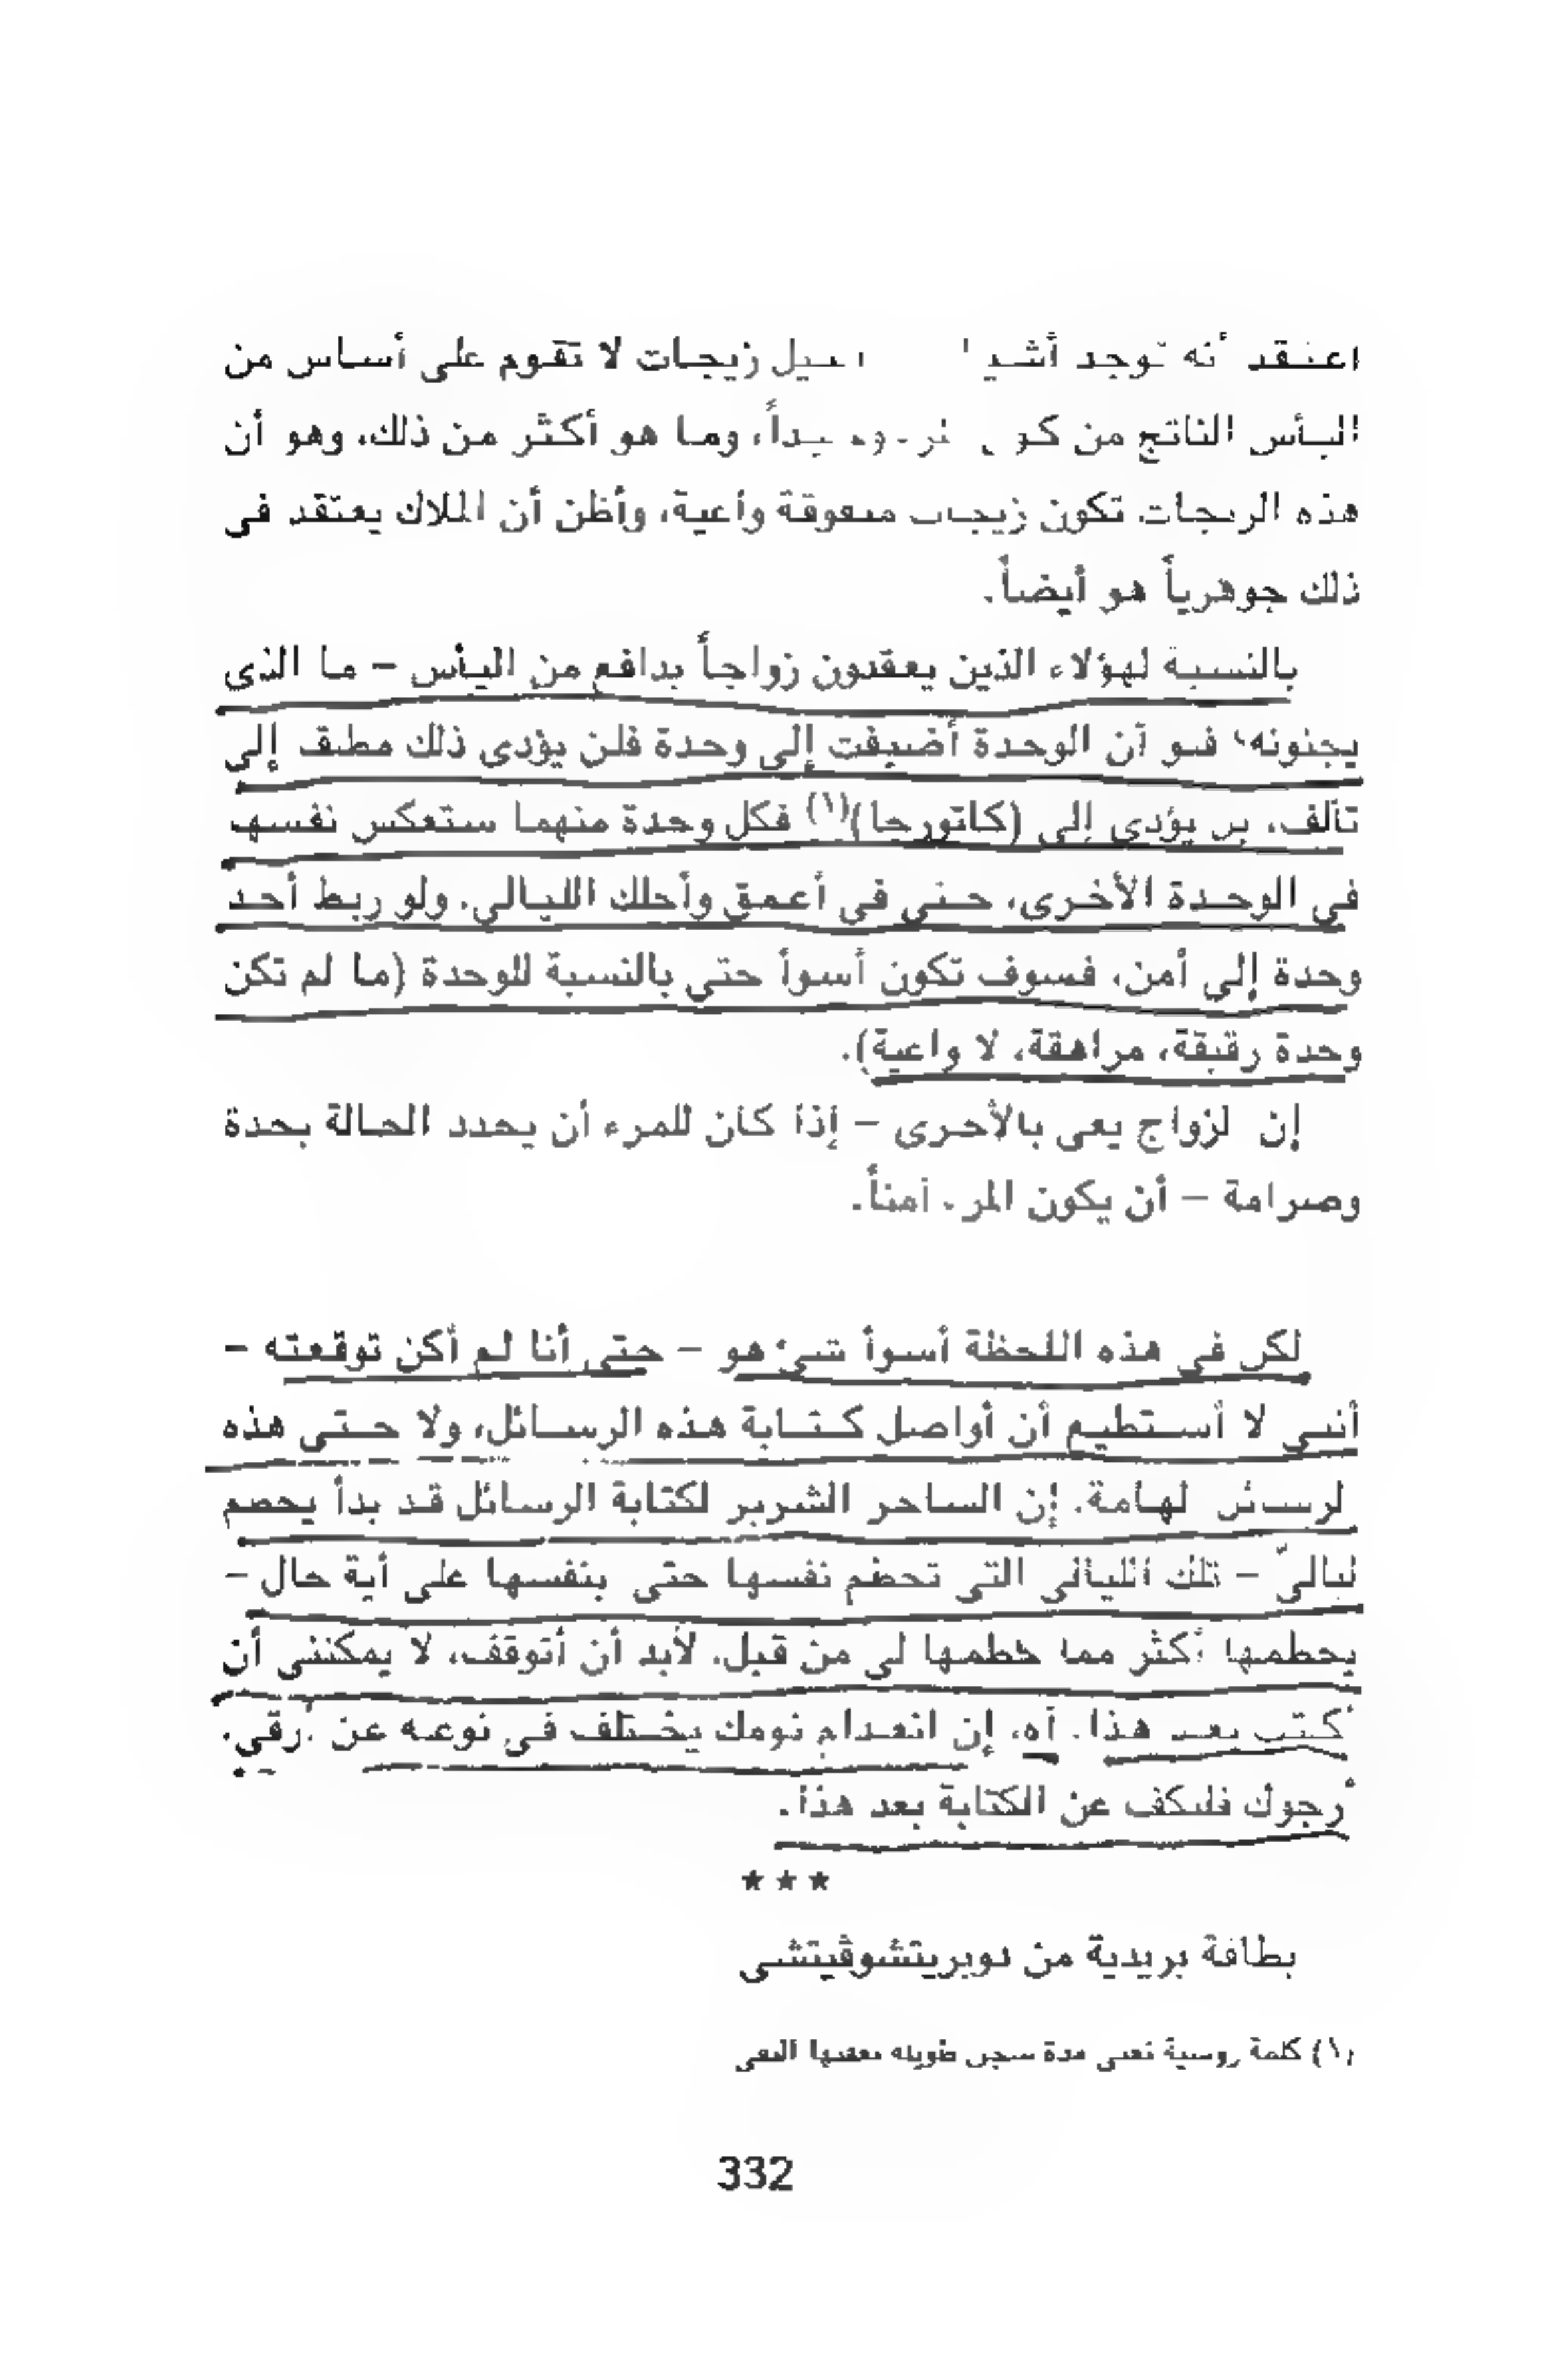 اعتقد أنه توجد زيجات لا تقوم على أساس من
اليأس الناتج من وما هو أكثر من ذلك، وهو أن
هذه الزيجات تكون زيجات واعية، وأظن أن الملاك يعتقد فى
ذلك جوهرياً هو أيضاً.
بالنسبة لهؤلاء الذين يعقدون زواجاً بدافع من اليأس – ما الذى
يجنونه؟ أن الوحدة أضيفت إلى وحدة فلن يؤدى ذلك مطلقاً إلى
تآلف، بل يؤدى إلى (كاتورجا)(١) فكل وحدة منهما ستعكس نفسها
فى الوحدة الأخرى، حتى فى أعمق وأحلك الليالى. ولو ربط أحد
وحدة إلى أمن، فسوف تكون أسوأ حتى بالنسبة للوحدة (ما لم تكن
وحدة رقيقة، مراهقة، لا واعية).
إن الزواج يعى بالأحرى – إذا كان للمرء أن يحدد الحالة بحدة
وصرامة – أن يكون المرء آمناً.
لكن فى هذه اللحظة أسوأ شىء هو – حتى أنا لم أكن توقعته –
أننى لا أستطيع أن أواصل كتابة هذه الرسائل، ولا حتى هذه
الرسائل الهامة. إن الساحر الشرير لكتابة الرسائل قد بدأ يحطم
ليالىّ – تلك الليالى التى تحطم نفسها حتى بنفسها على أية حال –
يحطمها أكثر مما حطمها لى من قبل. لابد أن أتوقف، لا يمكننى أن
أكتب بعد هذا. آه، إن انعدام نومك يختلف فى نوعه عن أرقى.
أرجوك فلنكف عن الكتابة بعد هذا.
★★★
بطاقة بريدية من دوبريتشوڤيتشى
(١) كلمة روسية تعنى مدة سجن طويلة يعقبها النفى
332